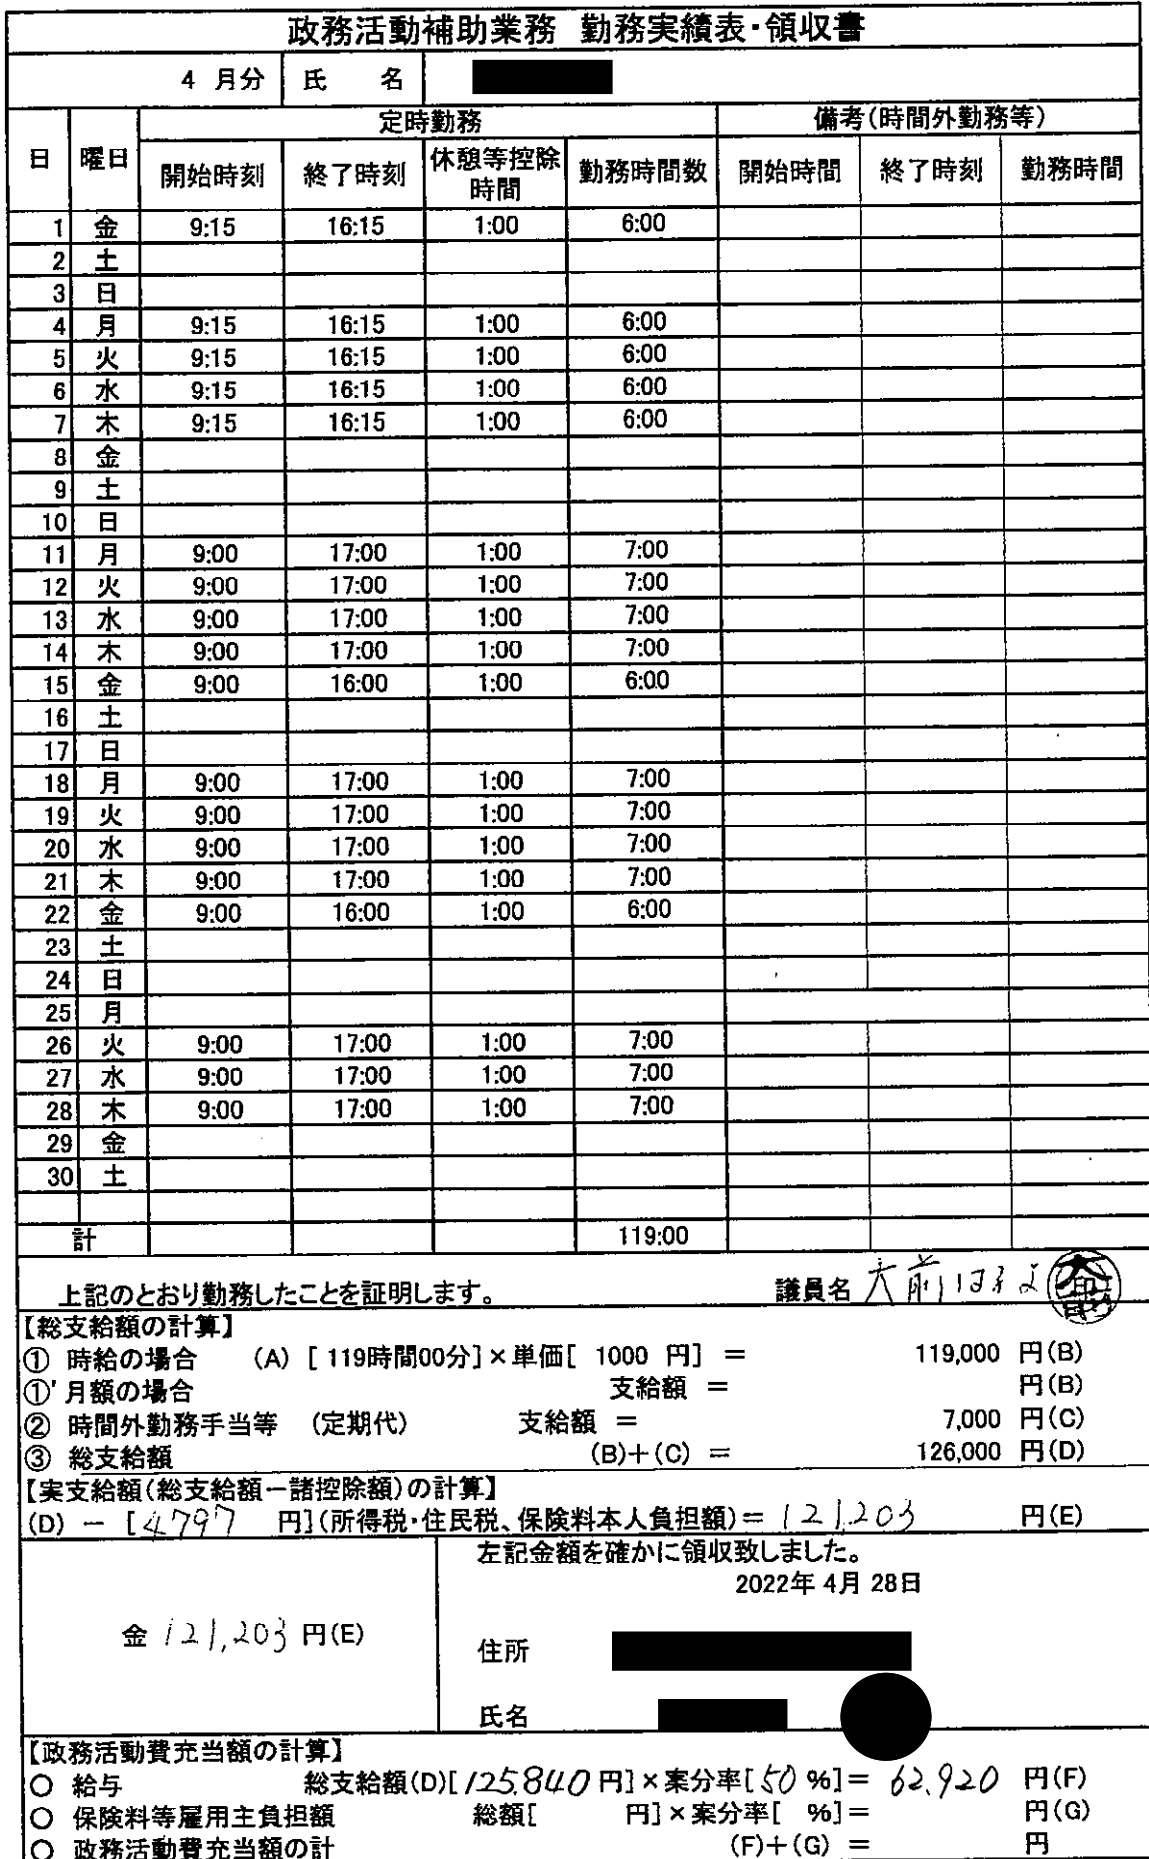 政務活動補助業務 勤務実績表・領収書
4 月分 氏 名
定時勤務 備考(時間外勤務等)
日 曜日 開始時刻 終了時刻 休憩等控除時間 勤務時間数 開始時間 終了時刻 勤務時間
1 金 9:15 16:15 1:00 6:00
2 土
3 日
4 月 9:15 16:15 1:00 6:00
5 火 9:15 16:15 1:00 6:00
6 水 9:15 16:15 1:00 6:00
7 木 9:15 16:15 1:00 6:00
8 金
9 土
10 日
11 月 9:00 17:00 1:00 7:00
12 火 9:00 17:00 1:00 7:00
13 水 9:00 17:00 1:00 7:00
14 木 9:00 17:00 1:00 7:00
15 金 9:00 16:00 1:00 6:00
16 土
17 日
18 月 9:00 17:00 1:00 7:00
19 火 9:00 17:00 1:00 7:00
20 水 9:00 17:00 1:00 7:00
21 木 9:00 17:00 1:00 7:00
22 金 9:00 16:00 1:00 6:00
23 土
24 日
25 月
26 火 9:00 17:00 1:00 7:00
27 水 9:00 17:00 1:00 7:00
28 木 9:00 17:00 1:00 7:00
29 金
30 土
計 119:00
上記のとおり勤務したことを証明します。 議員名 大前はるよ
【総支給額の計算】
① 時給の場合 (A) [ 119時間00分]×単価[ 1000 円] = 119,000 円(B)
①' 月額の場合 支給額 = 円(B)
② 時間外勤務手当等 (定期代) 支給額 = 7,000 円(C)
③ 総支給額 (B)+(C) = 126,000 円(D)
【実支給額(総支給額－諸控除額)の計算】
(D) － [4797 円](所得税・住民税、保険料本人負担額)= 121,203 円(E)
左記金額を確かに領収致しました。
2022年 4月 28日
金 121,203 円(E)
住所
氏名
【政務活動費充当額の計算】
○ 給与 総支給額(D)[125,840 円]×案分率[50 %]= 62,920 円(F)
○ 保険料等雇用主負担額 総額[ 円]×案分率[ %]= 円(G)
○ 政務活動費充当額の計 (F)+(G) = 円